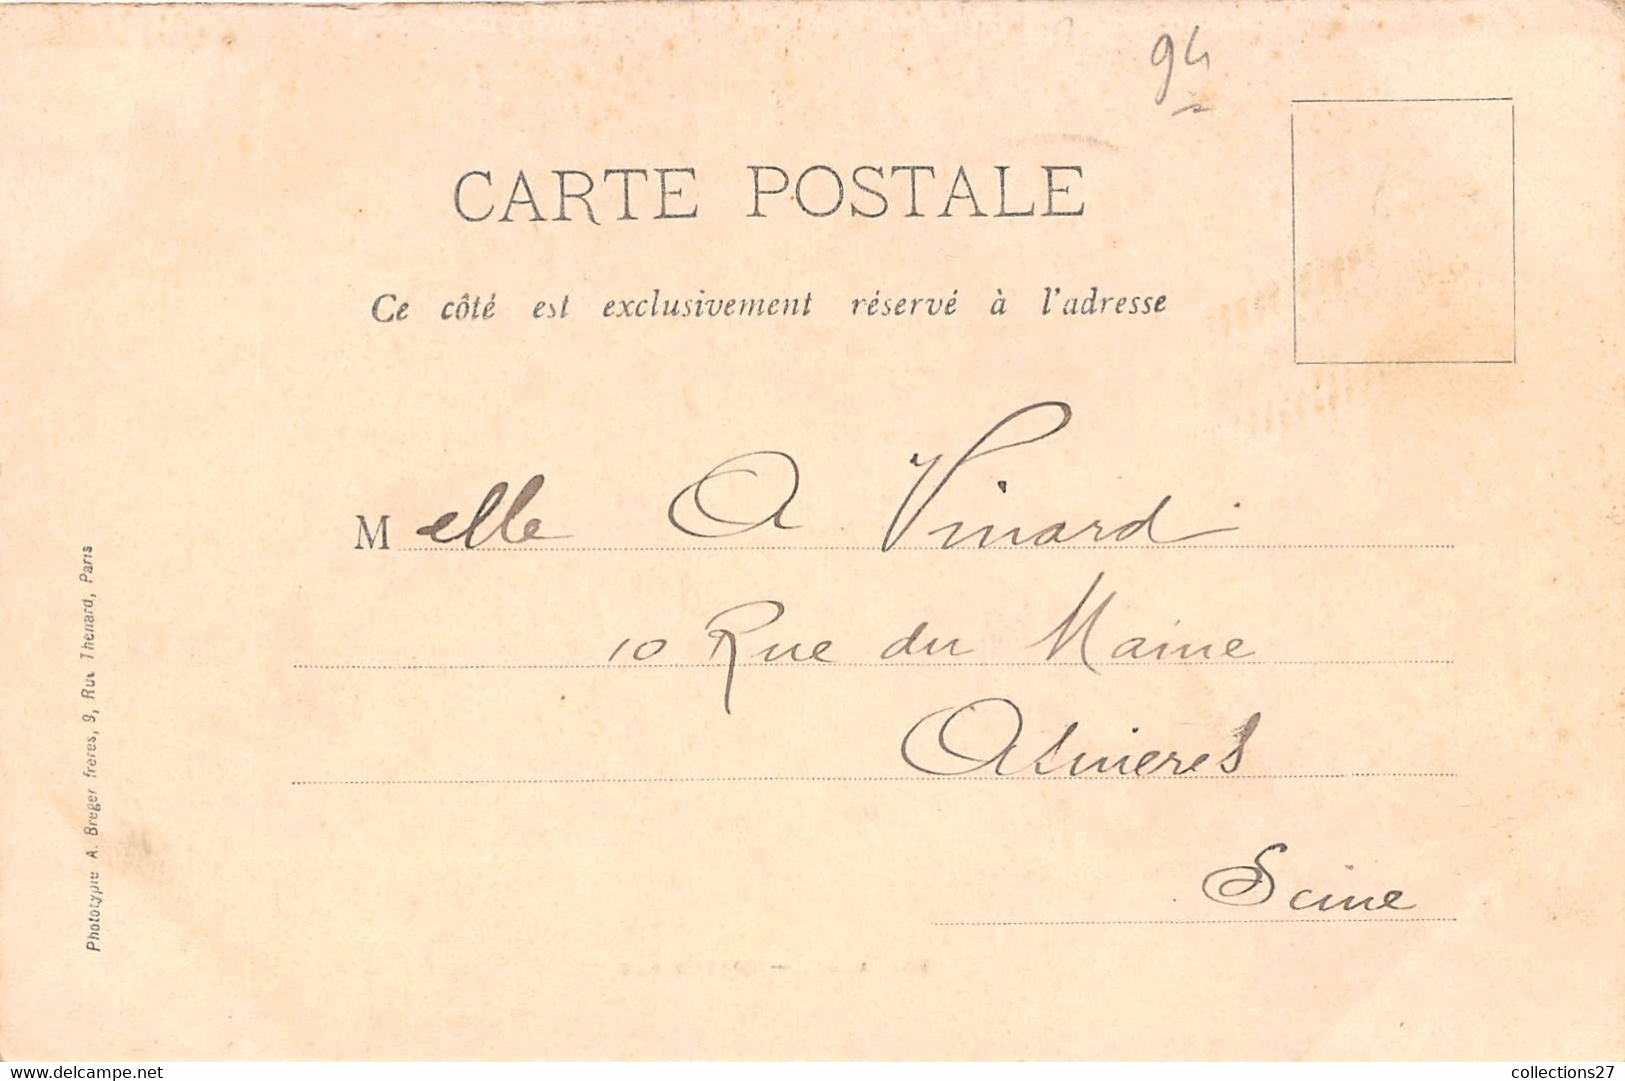 94
CARTE POSTALE
Ce côté est exclusivement réservé à l'adresse
Melle A Vinard
10 Rue du Maine
Asnieres
Seine
Phototypie A. Breger freres, 9, Rue Thenard, Paris
www.delcampe.net
collections27